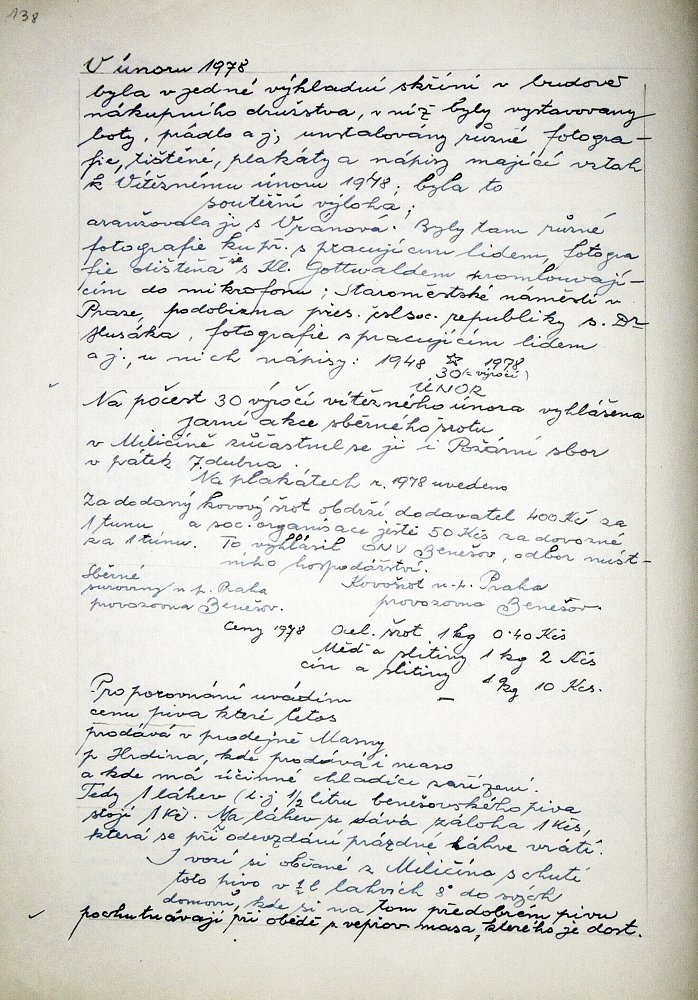 138
V únoru 1978
byla v jedné výkladní skříni v budově
nákupního družstva, v níž byly vystavovany
boty, prádlo a j; instalovány různé fotogra-
fie, tištěné, plakáty a nápisy mající vztah
k Vítěznému únoru 1948; byla to
soutěžní výloha;
aranžovala ji s Vranová. Byly tam různé
fotografie ku př. s pracujícím lidem, fotogra
fie tištěná se Kl. Gottwaldem promlouvají-
cím do mikrofonu; Staroměstské naměstí v
Praze, podobizna pres. čsl. soc. republiky s. Dr
Husáka, fotografie s pracujícím lidem
a j., u nich nápisy: 1948 ☆ 1978
30 (= výročí)
ÚNOR
Na počest 30 výročí vítězného února vyhlášena
jarní akce sběrného šrotu
v Miličíně zúčastnil se jí i Požární sbor
v pátek 7. dubna.
Na plakátech r. 1978 uvedeno
Za dodaný kovový šrot obdrží dodavatel 400 Kč za
1 tunu a soc. organisace ještě 50 Kčs za dovozné
za 1 tunu. To vyhlásil ONV Benešov, odbor míst-
ního hospodářství.
Sběrné
suroviny n. p. Praha
provozovna Benešov.
Kovošrot n. p. Praha
provozovna Benešov.
Ceny 1978 Ocel. šrot 1 kg 0.40 Kčs
Měď a slitiny 1 kg 2 Kčs
cín a slitiny 1 kg 10 Kčs.
Pro porovnání uvádím
cenu piva které letos
prodává v prodejně Masny
p Hrdina, kde prodává i maso
a kde má účinné chladící zařízení.
Tedy 1 láhev (t. j. 1/2 litru benešovského piva
stojí 1 Kč. Na láhev se dává záloha 1 Kčs,
která se při odevzdání prázdné láhve vrátí.
I vozí si občané z Miličína s chutí
toto pivo v 1/2 l lahvích 8° do svých
domovů, kde si na tom předobrém pivu
pochutnávají při obědě z vepřov. masa, kterého je dost.